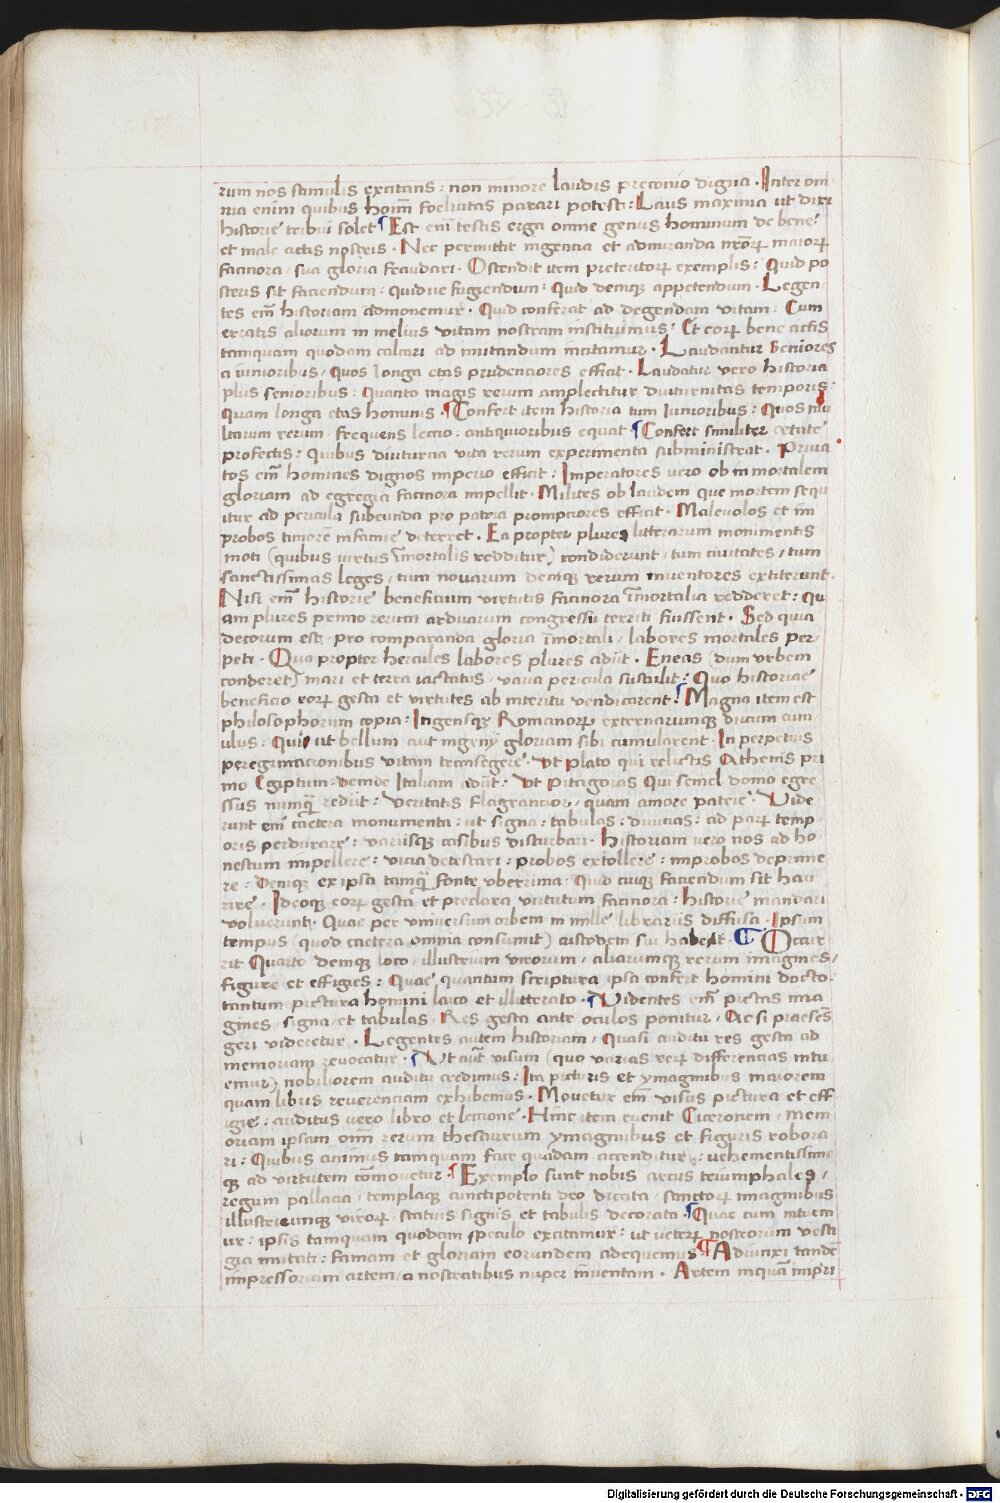 rum nos stimulis excitans : non minore laudis preconio digna · Inter om
nia enim quibus homī foelicitas parari potest : Laus maxima ut diri
historie tribui solet ¶ Est enī testis erga omne genus hominum de bene
et male actis nostris · Nec permittit ingencia et admiranda nr̄orꝝ maiorꝝ
facinora / sua gloria fraudari · Ostendit item preteritorꝝ exemplis : Quid po
steris sit faciendum : quid ue fugiendum : Quid demqꝫ appetendum · Legen
tes em̄ historiam admonemur · Quid conferat ad degendam vitam : Cum
erratis aliorum in melius vitam nostram instituimus : Et eorꝝ bene actis
tamquam quodam calcari ad imitandum incitamur · Laudantur Seniores
a iunioribus / Quos longa etas prudenciores efficit · Laudatur vero historia
plus senioribus : Quanto magis rerum amplectitur diuturnitas temporis :
Quam longa etas hominis · ¶ Confert item historia tum Iunioribus : Quos mu
ltarum rerum frequens lectio : antiquioribus equat · ¶ Confert similiter ętate
profectis : Quibus diuturna vita rerum experimenta subministrat · Priua
tos em̄ homines dignos imperio efficit : Imperatores vero ob inmortalem
gloriam ad egregia facinora impellit · Milites ob laudem que mortem sequ
itur ad pericula subeunda pro patria prompciores efficit · Maleuolos et im
probos timore infamie deterret · Ea propter plures litterarum monimentis
moti (quibus virtus īmortalis redditur) condiderunt / tum ciuitates / tum
sanctissimas leges / tum nouarum demqꝫ rerum inuentores extiterunt ·
Nisi em̄ historie beneficium virtutis facinora īmortalia redderet : Qu
am plures primo rerum arduarum congressu territi fuissent · Sed quia
decorum est / pro comparanda gloria īmortali / labores mortales per
peti · Qua propter hercules labores plures adiit · Eneas (dum vrbem
conderet) mari et terra iactatus / varia pericula sustulit : Quo historiae
beneficio eorꝝ gesta et virtutes ab interitu vendicarent ¶ Magna item est
philosophorum copia : Ingensqꝫ Romanorꝝ externarumqꝫ ducum cum
ulus : Qui ut bellum aut ingenij gloriam sibi cumularent · In perpetuis
peregrinacionibus vitam transegere · Vt Plato qui relictis Athenis pri
mo Egiptum deinde Italiam adiit : Vt Pitagoras Qui semel domo egre
ssus numq̄ rediit : veritatis flagrancior / quam amore patrie · Vide
runt em̄ caetera monumenta : ut signa : tabulas : diuicias : ad parꝝ temp
oris perdurare : variisqꝫ casibus disturbari · Historiam vero nos ad ho
nestum impellere : vicia detestari : probos extollere : improbos deprime
re : Demqꝫ ex ipsa tamq̄ fonte vberrima · Quid cuiqꝫ faciendum sit hau
rire · Ideoqꝫ eorꝝ gesta et preclara virtutum facinora : historie mandari
voluerunt · Quae per vniuersum orbem in mille librariis diffusa · Ipsum
tempus (quod caetera omnia consumit) custodem sui habent · ¶ Occur
rit Quarto demqꝫ loco / illustrium virorum / aliarumqꝫ rerum imagines /
figure et effigies : Quae quantum scriptura ipsa confert homini docto :
tantum pictura homini laico et illitterato · ¶ Videntes em̄ pictas ima
gines / signa et tabulas / Res gesta ante oculos ponitur / Ac si praesēs
geri videretur · Legentes autem historiam / Quasi auditu res gesta ad
memoriam reuocatur · ¶ Vt aūt visum (quo varias rerꝝ differencias intu
emur) nobiliorem auditu credimus : Ita picturis et ymaginibus maiorem
quam libris reuerenciam exhibemus · Mouetur em̄ visus pictura et eff
igie : auditus vero libro et lectione · Hinc item euenit Ciceronem / mem
oriam ipsam omī rerum thesaurum ymaginibus et figuris robora
ri : Quibus animus tamquam face quadam accenditur : vehementissime
qꝫ ad virtutem cōmouetur · ¶ Exemplo sunt nobis arcus triumphales /
regum pallacia / templaqꝫ cunctipotenti deo dicata / sanctorꝝ imaginibus
illustriumqꝫ virorꝝ / statuis signis et tabulis decorata · ¶ Quae cum intuem
ur : ipsis tamquam quodam speculo excitamur : ut veterꝝ nostrorum vesti
gia imitati : famam et gloriam eorundem adequemus ¶ Adiunxi tandē
impressoriam artem / a nostratibus nuper inuentam · Artem inquā impri
Digitalisierung gefördert durch die Deutsche Forschungsgemeinschaft · DFG